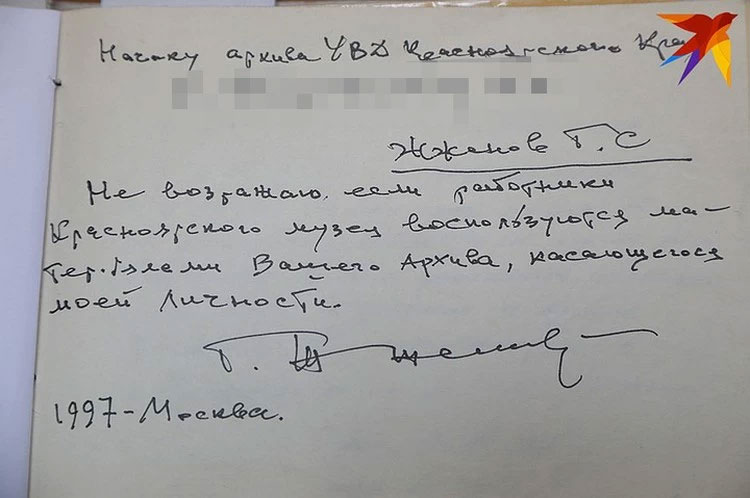 Нач-ку архива УВД Красноярского Края
Жженов Г. С
Не возражаю, если работники
Красноярского музея воспользуются ма-
териалами Вашего Архива, касающегося
моей личности.
Г. Жженов
1997 - Москва.